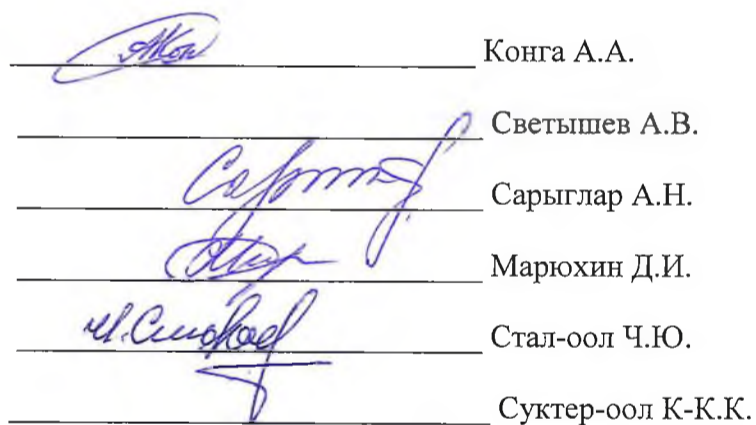 Конга А.А.
Светышев А.В.
Сарыглар А.Н.
Марюхин Д.И.
Стал-оол Ч.Ю.
Суктер-оол К-К.К.